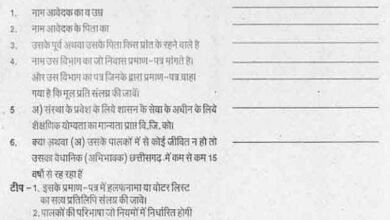 1. नाम आवेदक का व उम्र
2. नाम आवेदक के पिता का
3. उसके पूर्व अथवा उसके पिता किस प्रांत के रहने वाले है
4. नाम उस विभाग का जो निवास प्रमाण-पत्र मांगते है।
और उस विभाग का पत्र जिनके द्वारा प्रमाण-पत्र चाहा
गया है कि मूल प्रति संलग्न की जावें।
5 अ) संस्था के प्रवेश के लिये शासन के सेवा के अधीन के लिये
शैक्षणिक योग्यता का मान्यता प्राप्त वि.जि. को।
6. क्या अथवा (अ) उसके पालकों में से कोई जीवित न हो तो
उसका वैधानिक (अभिभावक) छत्तीसगढ़ में कम से कम 15
वर्षों से रह रहा हैं
टीप – 1. इसके प्रमाण-पत्र में हलफनामा या वोटर लिस्ट
का सत्य प्रतिलिपि संलग्न की जावें।
2. पालकों की परिभाषा जो नियमों में निर्धारित होगी